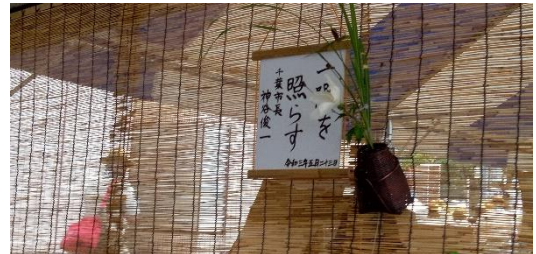 一 を
照らす
千葉市長
神谷俊一
令和三年五月二十三日